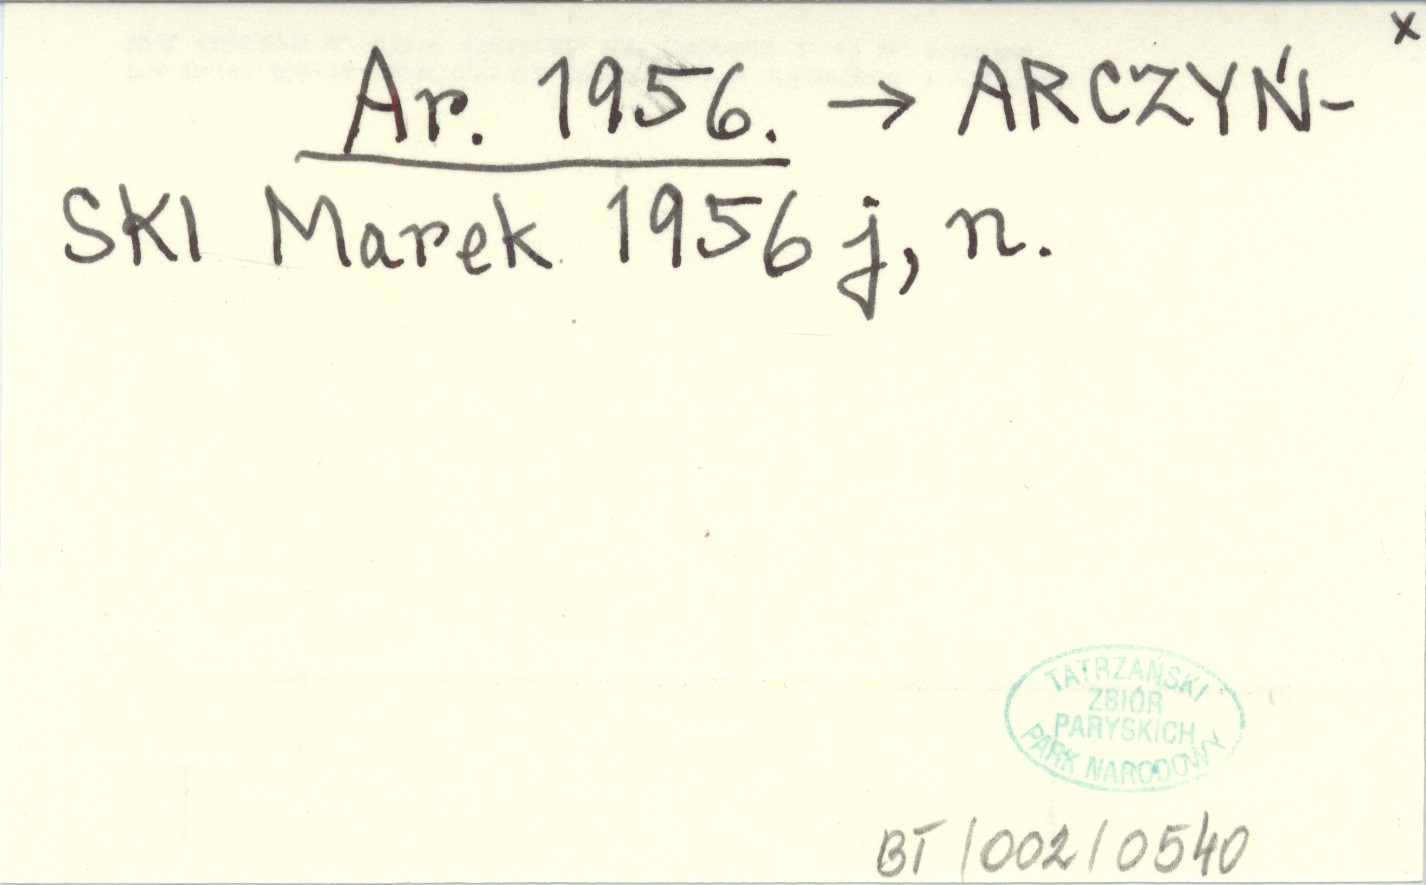 x
Ar. 1956. → ARCZYŃ-
SKI Marek 1956 j, n.
TATRZAŃSKI
ZBIÓR
PARYSKICH
PARK NARODOWY
BT/002/0540